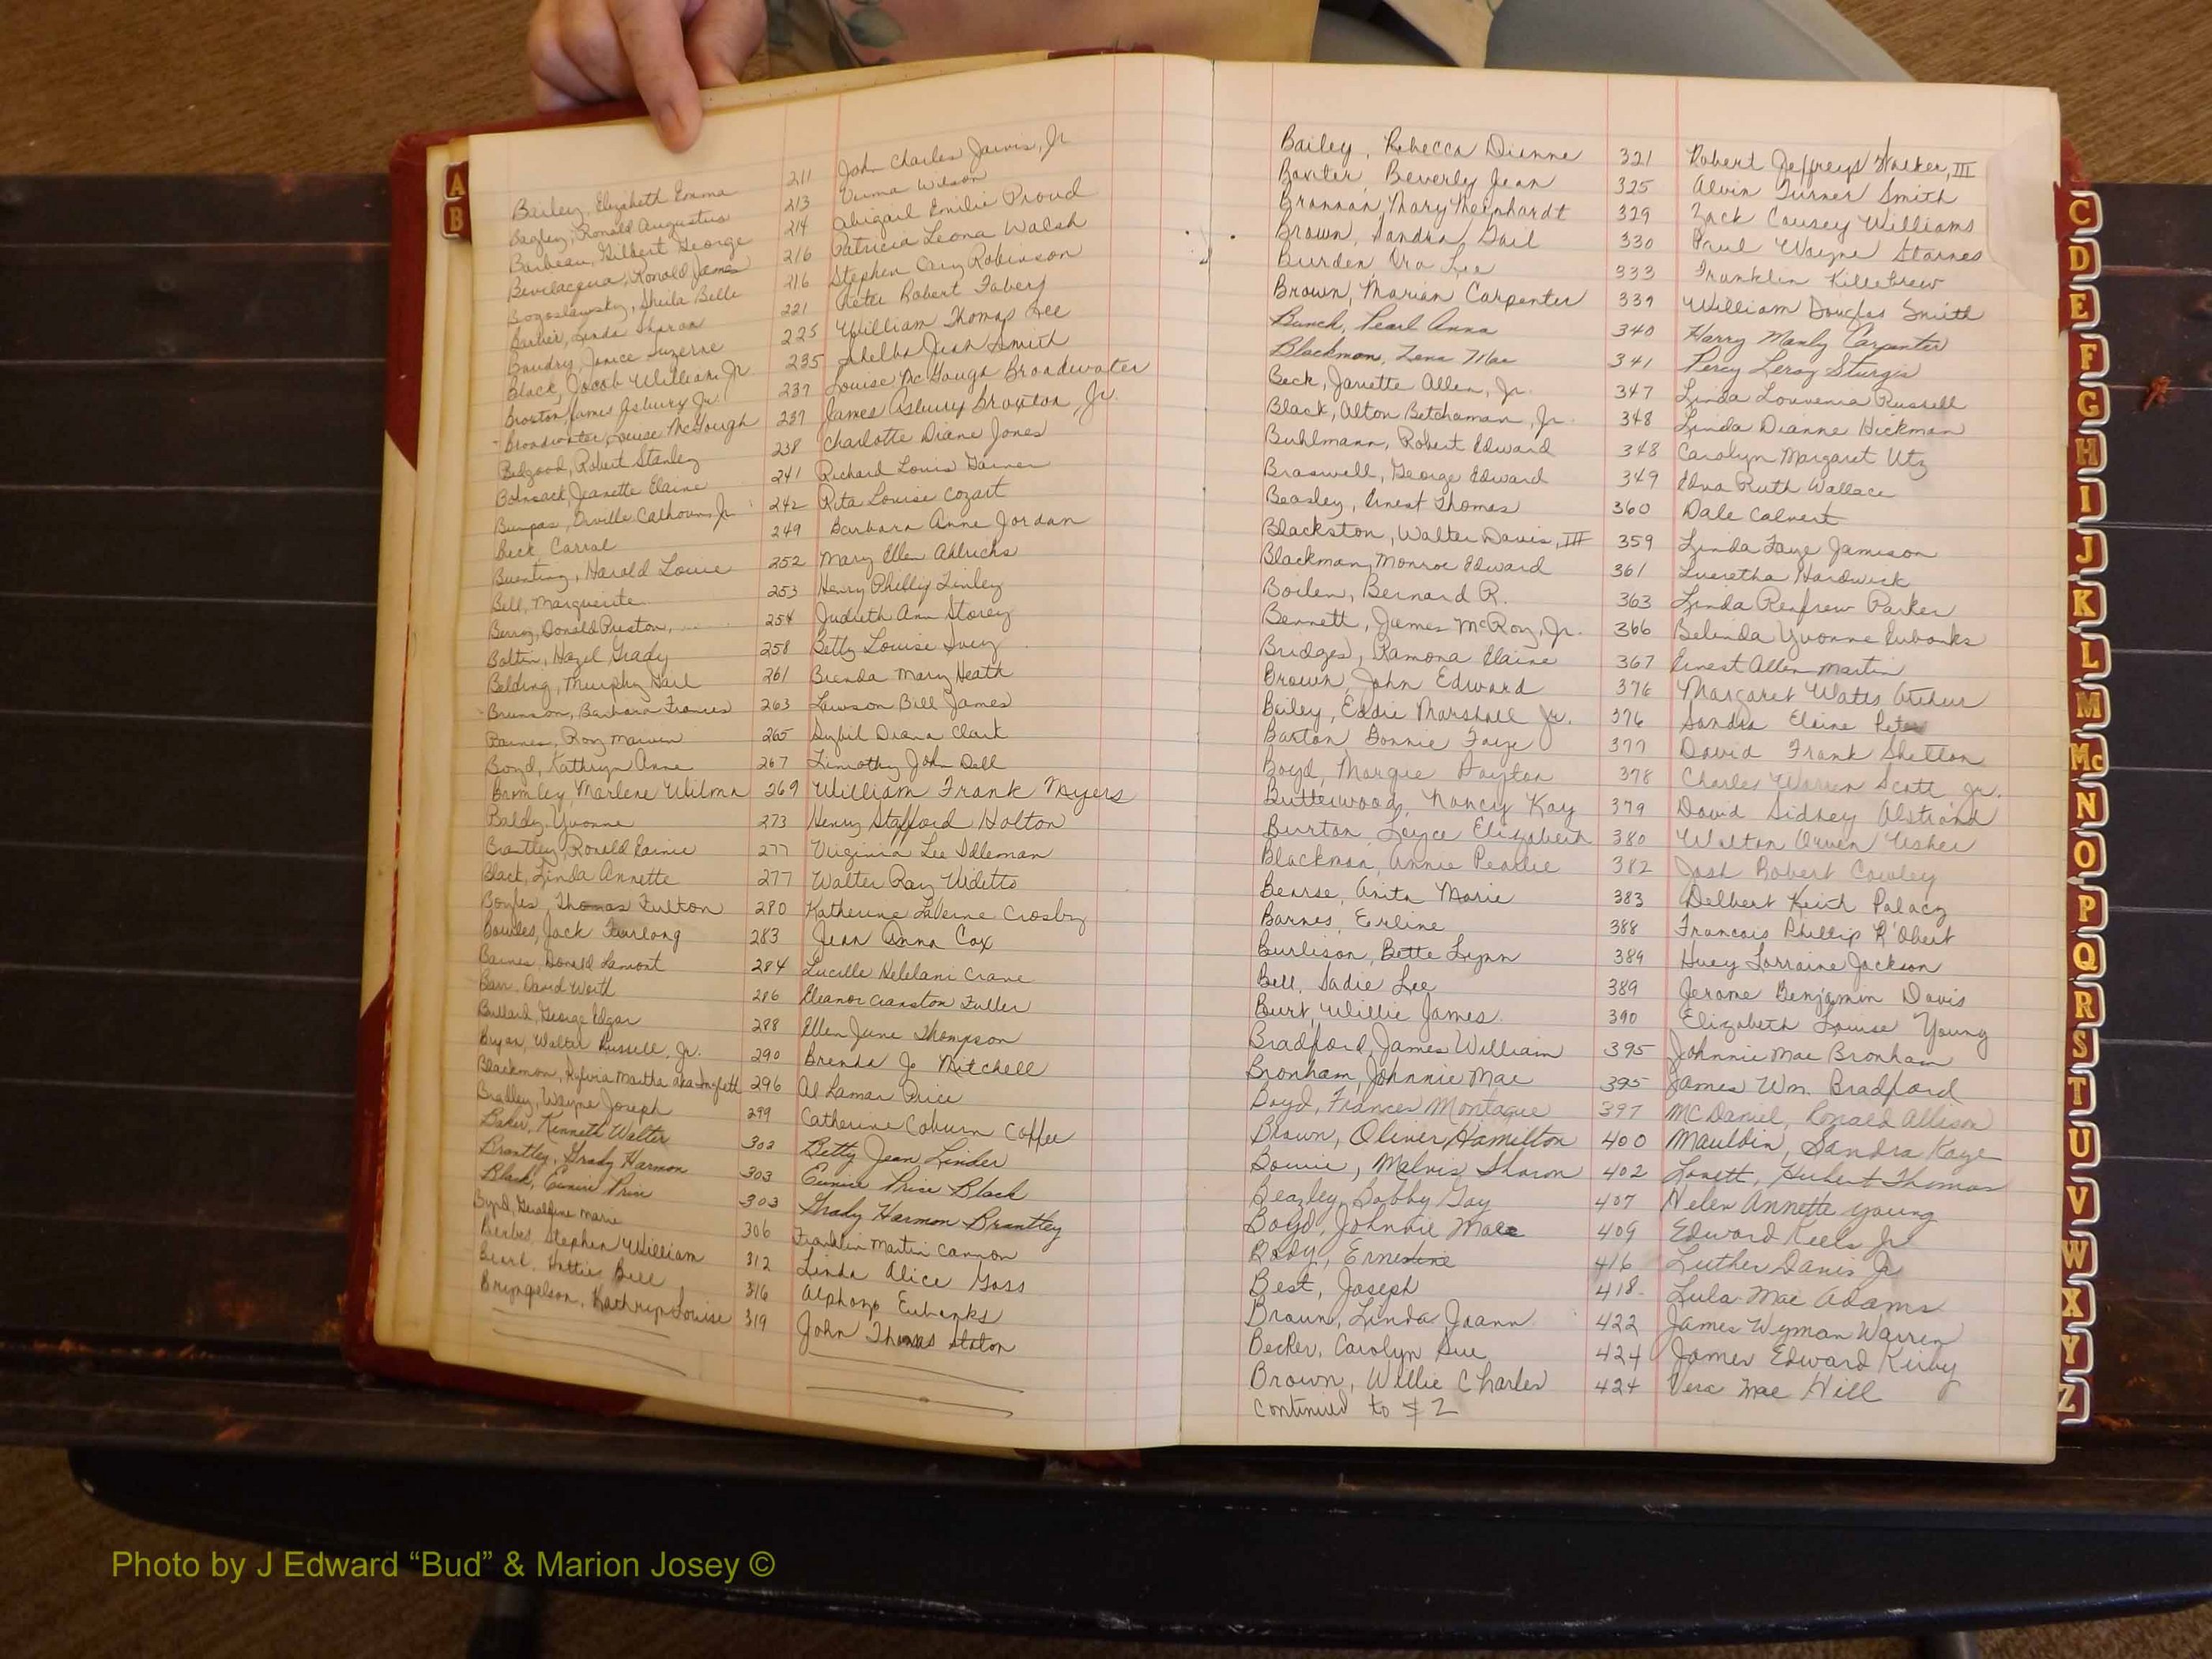 A
B
Bailey, Elizabeth Emma 211 John Charles Jarvis, Jr
Bagley, Ronald Augustus 213 Verma Wilson
Barbeau, Gilbert George 214 Abigail Emilie Proud
Bevelacqua, Ronald James 216 Patricia Leona Walsh
Bogoslawsky, Sheila Belle 216 Stephen Cary Robinson
Barbier, Linda Sharon 221 Peter Robert Faberj
Baudry, Janice Suzerne 225 William Thomas Lee
Black, Jacob William, Jr. 235 Shelba Jean Smith
Braxton, James Asbury Jr. 237 Louise McGough Broadwater
Broadwater, Louise McGough 237 James Asbury Braxton, Jr.
Bidgood, Robert Stanley 238 Charlotte Diane Jones
Bohnsack, Jeanette Elaine 241 Richard Louis Garner
Bumpas, Orville Calhoun, Jr 242 Rita Louise Cozart
Beck, Carral 249 Barbara Anne Jordan
Buenting, Harold Louie 252 Mary Ellen Ahlrichs
Bell, Marguerite 253 Henry Philly Finley
Berry, Donald Preston, 254 Judieth Ann Storey
Boltin, Hazel Grady 258 Betty Louise Ivey
Belding, Murphy Harl 261 Brenda Mary Heath
Brunson, Barbara Frances 263 Lawson Bill James
Barnes, Roy Marvin 265 Sybil Diana Clark
Boyd, Kathryn Anne 267 Timothy John Dall
Bromley, Marlene Wilma 269 William Frank Myers
Baldy, Yvonne 273 Henry Stafford Holton
Brantley, Ronald Rainie 277 Virginia Lee Idleman
Black, Linda Annette 277 Walter Ray Videtto
Boyles, Thomas Fulton 280 Katherine LaVerne Crosby
Bowles, Jack Furlong 283 Jean Anna Cox
Barnes, Donald Lamont 284 Lucille Helelani Crane
Barr, David Worth 286 Eleanor Cranston Fuller
Bullard, George Edgar 288 Ellen June Thompson
Bryan, Walter Russell, Jr. 290 Brenda Jo Mitchell
Blackmon, Sylvia Martha aka Inglett 296 Al Lamar Price
Bradley, Wayne Joseph 299 Catherine Coburn Coffee
Baker, Kenneth Walter 302 Betty Jean Linder
Brantley, Grady Harmon 303 Eunice Price Black
Black, Eunice Price 303 Grady Harmon Brantley
Byrd, Geraldine Marie 306 Franklin Martin Cannon
Beebe, Stephen William 312 Linda Alice Goss
Beard, Hattie Bell 316 Alphozo Eubanks
Bryngelson, Kathryn Louise 319 John Thomas Staton
Bailey, Rebecca Dianne 321 Robert Jeffreys Walker, III
Baxter, Beverly Jean 325 Alvin Turner Smith
Brannan, Mary Meinhardt 329 Zack Causey Williams
Brown, Sandra Gail 330 Paul Wayne Starnes
Burden, Ora Lee 333 Franklin Killebrew
Brown, Marian Carpenter 339 William Douglas Smith
Bunch, Pearl Anna 340 Harry Manly Carpenter
Blackmon, Lena Mae 341 Percy Leroy Sturgis
Beck, Jarrette Allen, Jr. 347 Linda Louvenia Russell
Black, Alton Betchaman, Jr. 348 Linda Dianne Hickman
Buhlmann, Robert Edward 348 Carolyn Margaret Utz
Braswell, George Edward 349 Edna Ruth Wallace
Beasley, Ernest Thomas 360 Dale Calvert
Blackston, Walter Davis, III 359 Linda Faye Jamison
Blackman, Monroe Edward 361 Lueretha Hardwick
Boilen, Bernard R. 363 Linda Renfrew Parker
Bennett, James McRoy, Jr. 366 Belinda Yvonne Eubanks
Bridges, Ramona Elaine 367 Ernest Allen Martin
Brown, John Edward 376 Margaret Watts Arthur
Bailey, Eddie Marshall Jr. 376 Sandra Elaine Pete
Barton Bonnie Faye 377 David Frank Shelton
Boyd, Margie Dayton 378 Charles Warren Scott Jr.
Butterwood, Nancy Kay 379 David Sidney Alstrand
Burton, Joyce Elizabeth 380 Walton Owen Usher
Blackmon, Annie Pearlie 382 Josh Robert Cowley
Bearse, Anita Marie 383 Delbert Keith Palacz
Barnes, Erline 388 Francois Phillip R'Obert
Burlison, Bette Lynn 389 Huey Lorraine Jackson
Bell, Sadie Lee 389 Jerome Benjamin Davis
Burt, Willie James. 390 Elizabeth Louise Young
Bradford, James William 395 Johnnie Mae Bronham
Bronham, Johnnie Mae 395 James Wm. Bradford
Boyd, Frances Montague 397 McDaniel, Ronald Allison
Brown, Oliver Hamilton 400 Mauldin, Sandra Kaye
Bowie, Melvis Sharon 402 Lovett, Hubert Thomas
Beazley, Bobby Gay 407 Helen Annette Young
Boyd, Johnnie Mae 409 Edward Keels Jr
Body, Ernestine 416 Luther Davis Jr
Best, Joseph 418 Lula Mae Adams
Braun, Linda Joann 422 James Wyman Warren
Becker, Carolyn Sue 424 James Edward Kirby
Brown, Willie Charles 424 Vera Mae Hill
continued to # 2
C
D
E
F
G
H
I
J
K
L
M
Mc
N
O
P
Q
R
S
T
U
V
W
X
Y
Z
Photo by J Edward “Bud” & Marion Josey ©